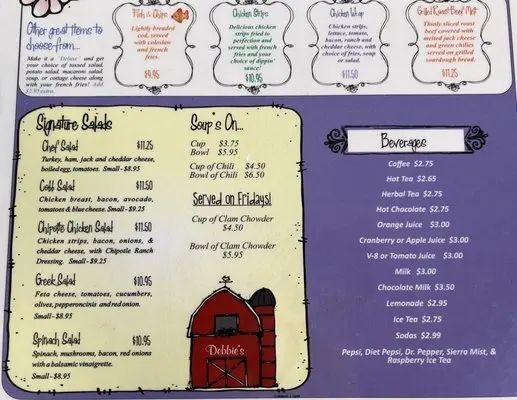 Other great items to
choose from...
Make it a "Deluxe" and get
your choice of tossed salad,
potato salad, macaroni salad,
soup, or cottage cheese along
with your french fries! Add
$2.95 extra.
Fish & Chips
Lightly breaded
with coleslaw
and french
fries.
$9.95
Chicken Strips
Delicious chicken
strips fried to
perfection and
served with french
fries and your
choice of dippin'
sauce!
$10.95
Chicken Wrap
Chicken strips,
lettuce, tomato,
bacon, ranch and
cheddar cheese, with
choice of fries, soup
or salad.
$11.50
Grilled Roast Beef Melt
Thinly sliced roast
beef covered with
melted jack cheese
and green chilies
served on grilled
sourdough bread.
$11.25
Signature Salads
Chef Salad $11.25
Turkey, ham, jack and cheddar cheese,
boiled egg, tomatoes. Small - $8.95
Cobb Salad $11.50
Chicken breast, bacon, avocado,
tomatoes & blue cheese. Small - $9.25
Chipotle Chicken Salad $11.50
Chicken strips, bacon, onions, &
cheddar cheese, with Chipotle Ranch
Dressing. Small - $9.25
Greek Salad $10.95
Feta cheese, tomatoes, cucumbers,
olives, pepperoncinis and red onion.
Small - $8.95
Spinach Salad $10.95
Spinach, mushrooms, bacon, red onions
with a balsamic vinaigrette.
Small - $8.95
Soup's On...
Cup $3.75
Bowl $5.95
Cup of Chili $4.50
Bowl of Chili $6.50
Served on Fridays!
Cup of Clam Chowder
$4.50
Bowl of Clam Chowder
$5.95
Debbie's
Beverages
Coffee $2.75
Hot Tea $2.65
Herbal Tea $2.75
Hot Chocolate $2.75
Orange Juice $3.00
Cranberry or Apple Juice $3.00
V-8 or Tomato Juice $3.00
Milk $3.00
Chocolate Milk $3.50
Lemonade $2.95
Ice Tea $2.75
Sodas $2.99
Pepsi, Diet Pepsi, Dr. Pepper, Sierra Mist, &
Raspberry Ice Tea